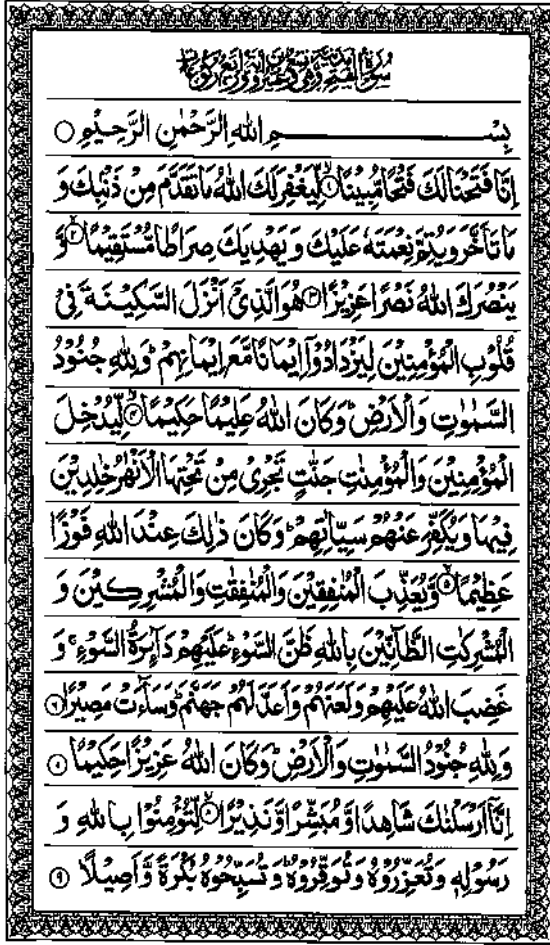 سُوْرَةُ الْفَتْحِ مَدَنِيَّةٌ وَّهِيَ تِسْعٌ وَّعِشْرُوْنَ اٰيَةً وَّاَرْبَعُ رُكُوْعَاتٍ
بِسْــــــــــــــــــمِ اللّٰهِ الرَّحْمٰنِ الرَّحِيْمِ ○
اِنَّا فَتَحْنَا لَكَ فَتْحًا مُّبِيْنًا ۙ﴿۱﴾ لِّيَغْفِرَ لَكَ اللّٰهُ مَا تَقَدَّمَ مِنْ ذَنْۢبِكَ وَ
مَا تَاَخَّرَ وَيُتِمَّ نِعْمَتَهٗ عَلَيْكَ وَ يَهْدِيَكَ صِرَاطًا مُّسْتَقِيْمًا ۙ﴿۲﴾ وَّ
يَنْصُرَكَ اللّٰهُ نَصْرًا عَزِيْزًا ﴿۳﴾ هُوَ الَّذِيْۤ اَنْزَلَ السَّكِيْنَةَ فِيْ
قُلُوْبِ الْمُؤْمِنِيْنَ لِيَزْدَادُوْۤا اِيْمَانًا مَّعَ اِيْمَانِهِمْ ؕ وَلِلّٰهِ جُنُوْدُ
السَّمٰوٰتِ وَالْاَرْضِ ؕ وَكَانَ اللّٰهُ عَلِيْمًا حَكِيْمًا ۙ﴿۴﴾ لِّيُدْخِلَ
الْمُؤْمِنِيْنَ وَالْمُؤْمِنٰتِ جَنّٰتٍ تَجْرِيْ مِنْ تَحْتِهَا الْاَنْهٰرُ خٰلِدِيْنَ
فِيْهَا وَيُكَفِّرَ عَنْهُمْ سَيِّاٰتِهِمْ ؕ وَكَانَ ذٰلِكَ عِنْدَ اللّٰهِ فَوْزًا
عَظِيْمًا ۙ﴿۵﴾ وَّيُعَذِّبَ الْمُنٰفِقِيْنَ وَالْمُنٰفِقٰتِ وَالْمُشْرِكِيْنَ وَ
الْمُشْرِكٰتِ الظَّآنِّيْنَ بِاللّٰهِ ظَنَّ السَّوْءِ ؕ عَلَيْهِمْ دَآئِرَةُ السَّوْءِ ۚ وَ
غَضِبَ اللّٰهُ عَلَيْهِمْ وَلَعَنَهُمْ وَاَعَدَّ لَهُمْ جَهَنَّمَ ؕ وَسَآءَتْ مَصِيْرًا ﴿۶﴾
وَلِلّٰهِ جُنُوْدُ السَّمٰوٰتِ وَالْاَرْضِ ؕ وَكَانَ اللّٰهُ عَزِيْزًا حَكِيْمًا ﴿۷﴾
اِنَّاۤ اَرْسَلْنٰكَ شَاهِدًا وَّمُبَشِّرًا وَّنَذِيْرًا ۙ﴿۸﴾ لِّتُؤْمِنُوْا بِاللّٰهِ وَ
رَسُوْلِهٖ وَتُعَزِّرُوْهُ وَتُوَقِّرُوْهُ ؕ وَتُسَبِّحُوْهُ بُكْرَةً وَّاَصِيْلًا ﴿۹﴾